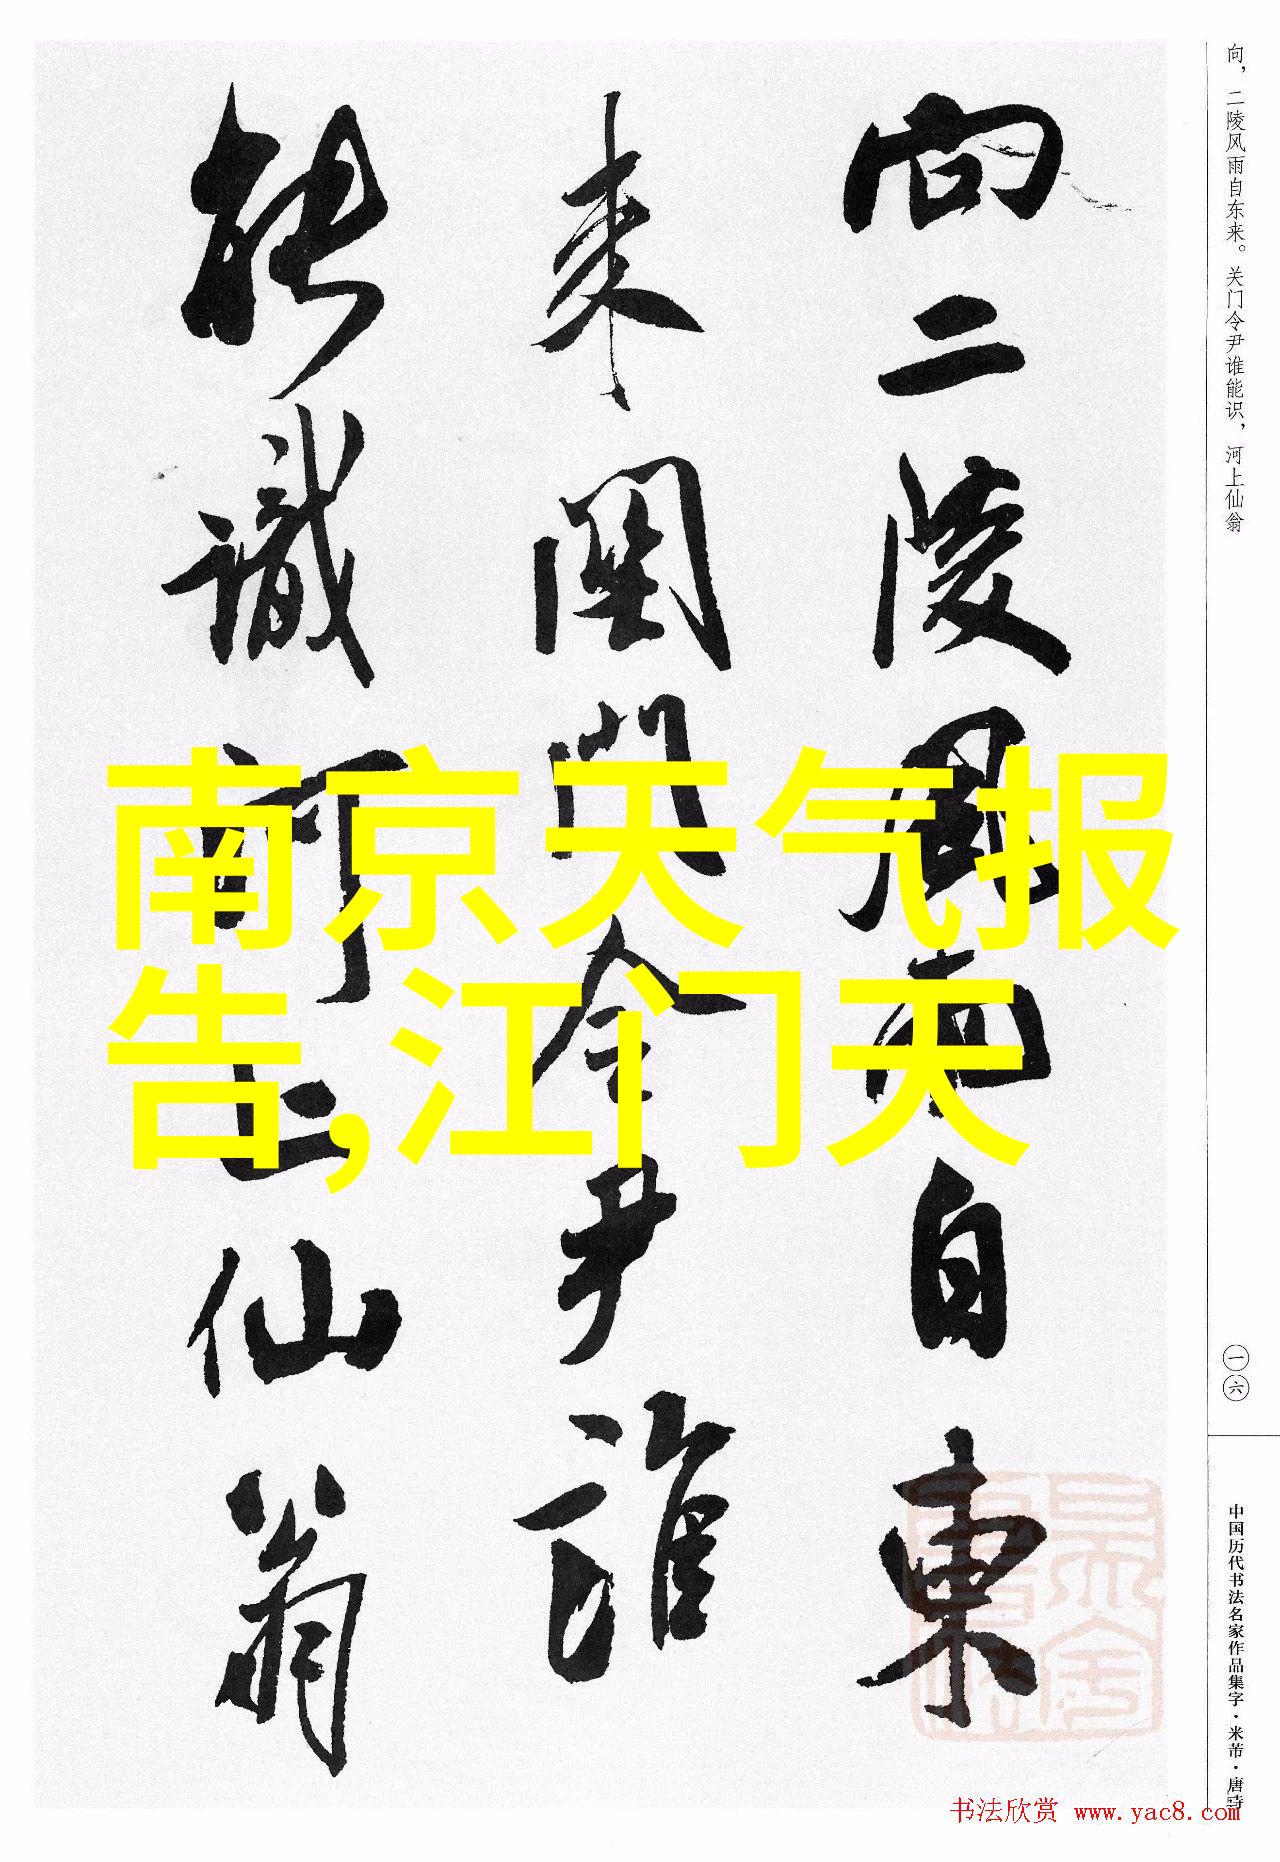 向二陵風雨自東
来關門令尹誰
能識河上仙翁
向，二陵风雨自东来。关门令尹谁能识，河上仙翁
一六
中国历代书法名家作品集字·米芾·唐诗
南京天气报
告,江门天
书法欣赏 www.yac8.com